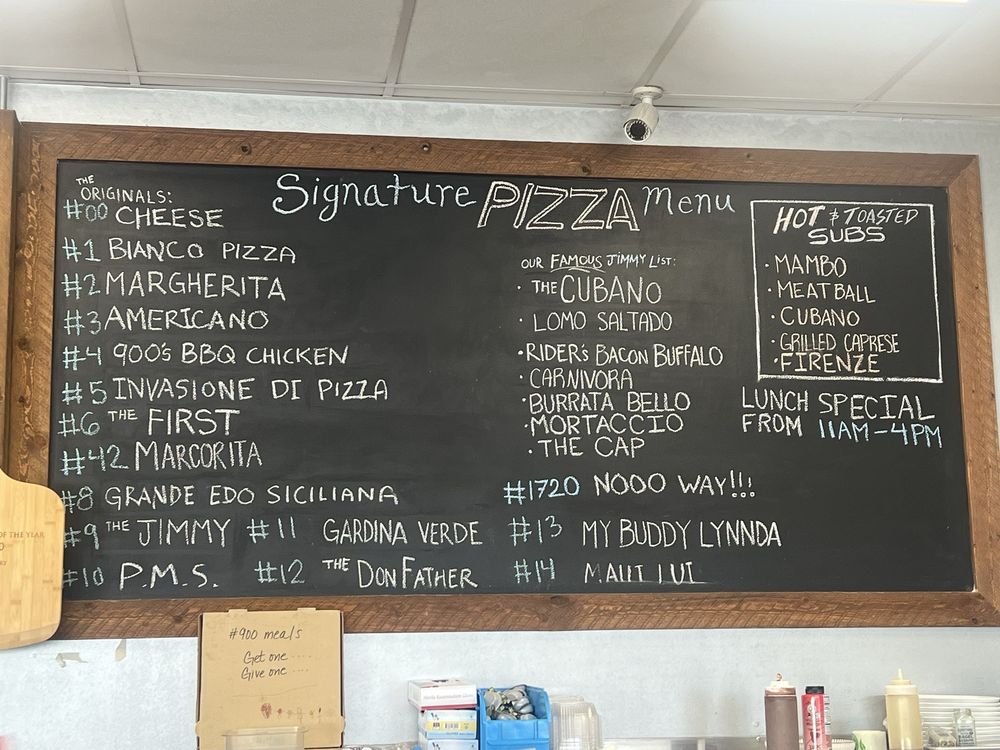 Signature PIZZA Menu
THE
ORIGINALS:
#00 CHEESE
#1 BIANCO PIZZA
#2 MARGHERITA
#3 AMERICANO
#4 900's BBQ CHICKEN
#5 INVASIONE DI PIZZA
#6 THE FIRST
#42 MARCORITA
#8 GRANDE EDO SICILIANA
#9 THE JIMMY
#10 P.M.S.
#11 GARDINA VERDE
#12 THE DON FATHER
OUR FAMOUS JIMMY LIST:
· THE CUBANO
· LOMO SALTADO
· RIDER's BACON BUFFALO
· CARNIVORA
· BURRATA BELLO
· MORTACCIO
· THE CAP
#1720 NOOO WAY!!!
#13 MY BUDDY LYNNDA
#14 MAUI LUI
HOT & TOASTED
SUBS
· MAMBO
· MEATBALL
· CUBANO
· GRILLED CAPRESE
· FIRENZE
LUNCH SPECIAL
FROM 11AM-4PM
OF THE YEAR
#900 meals
Get one ....
Give one ....